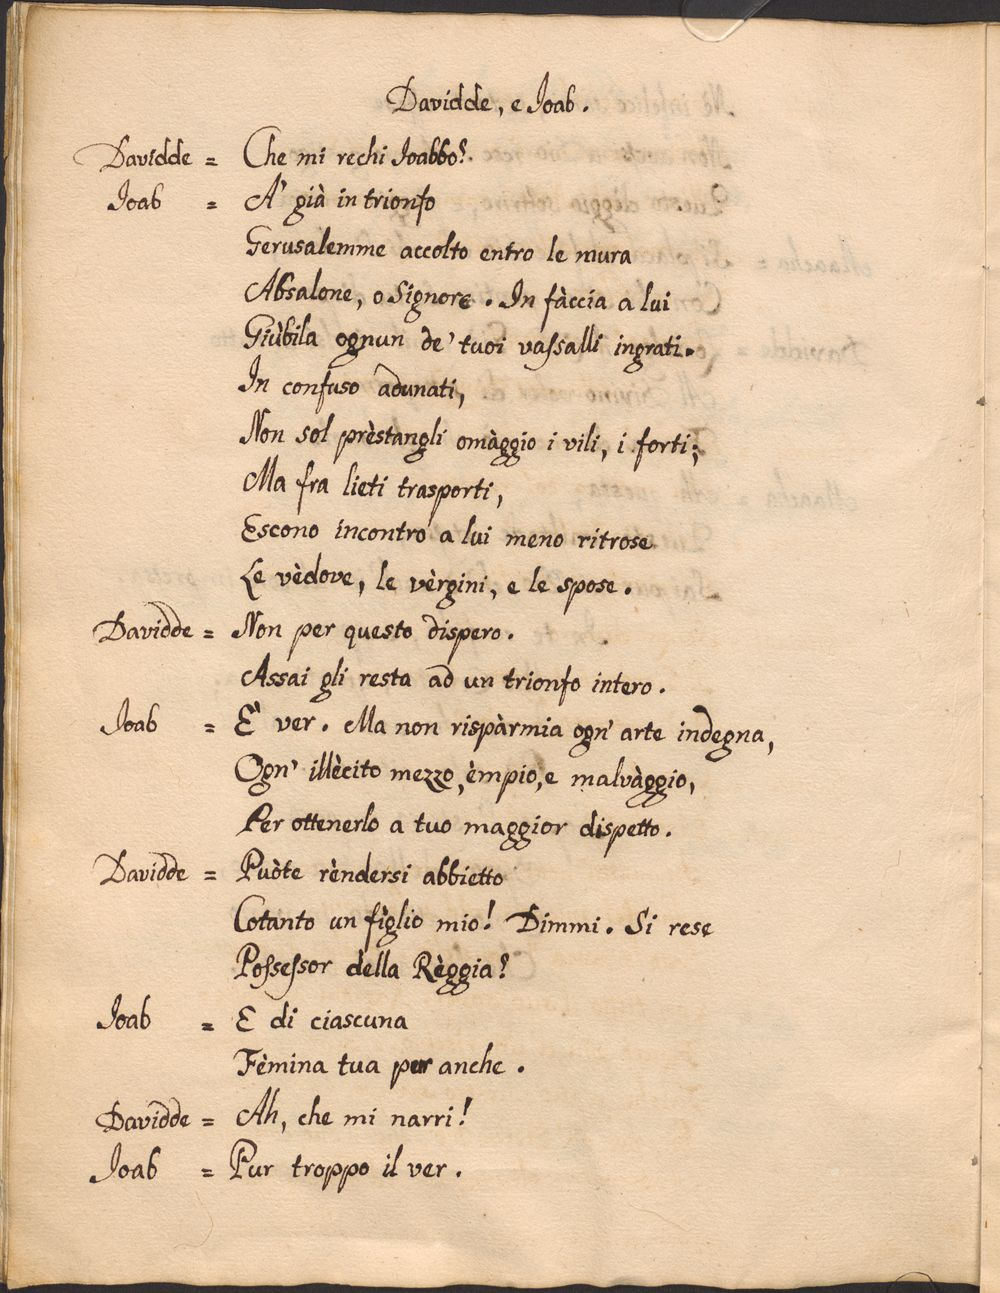 Davidde, e Joab.
Davidde = Che mi rechi Joabbo?
Joab = A' già in trionfo
Gerusalemme accolto entro le mura
Absalone, o Signore. In fàccia a lui
Giùbila ognun de' tuoi vaſsalli ingrati.
In confuso adunati,
Non sol prèstangli omàggio i vili, i forti;
Ma fra lieti trasporti,
Escono incontro a lui meno ritrose
Le vèdove, le vèrgini, e le spose.
Davidde = Non per questo dispero.
Assai gli resta ad un trionfo intero.
Joab = E' ver. Ma non rispàrmia ogn' arte indegna,
Ogn' illècito mezzo, èmpio, e malvàggio,
Per ottenerlo a tuo maggior dispetto.
Davidde = Puòte rèndersi abbietto
Cotanto un fìglio mio! Dimmi. Si rese
Poſseſsor della Règgia?
Joab = E di ciascuna
Fèmina tua pur anche.
Davidde = Ah, che mi narri!
Joab = Pur troppo il ver.